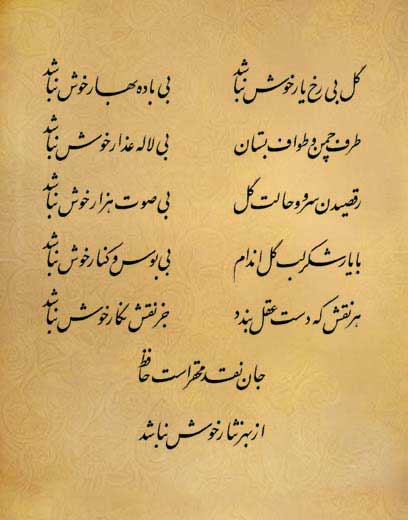 گل بی رخ یار خوش نباشد بی باده بهار خوش نباشد
طرف چمن و طواف بستان بی لاله عذار خوش نباشد
رقصیدن سرو و حالت گل بی صوت هزار خوش نباشد
با یار شکر لب گل اندام بی بوس و کنار خوش نباشد
هر نقش که دست عقل بندد جز نقش نگار خوش نباشد
جان نقد محقر است حافظ
از بهر نثار خوش نباشد